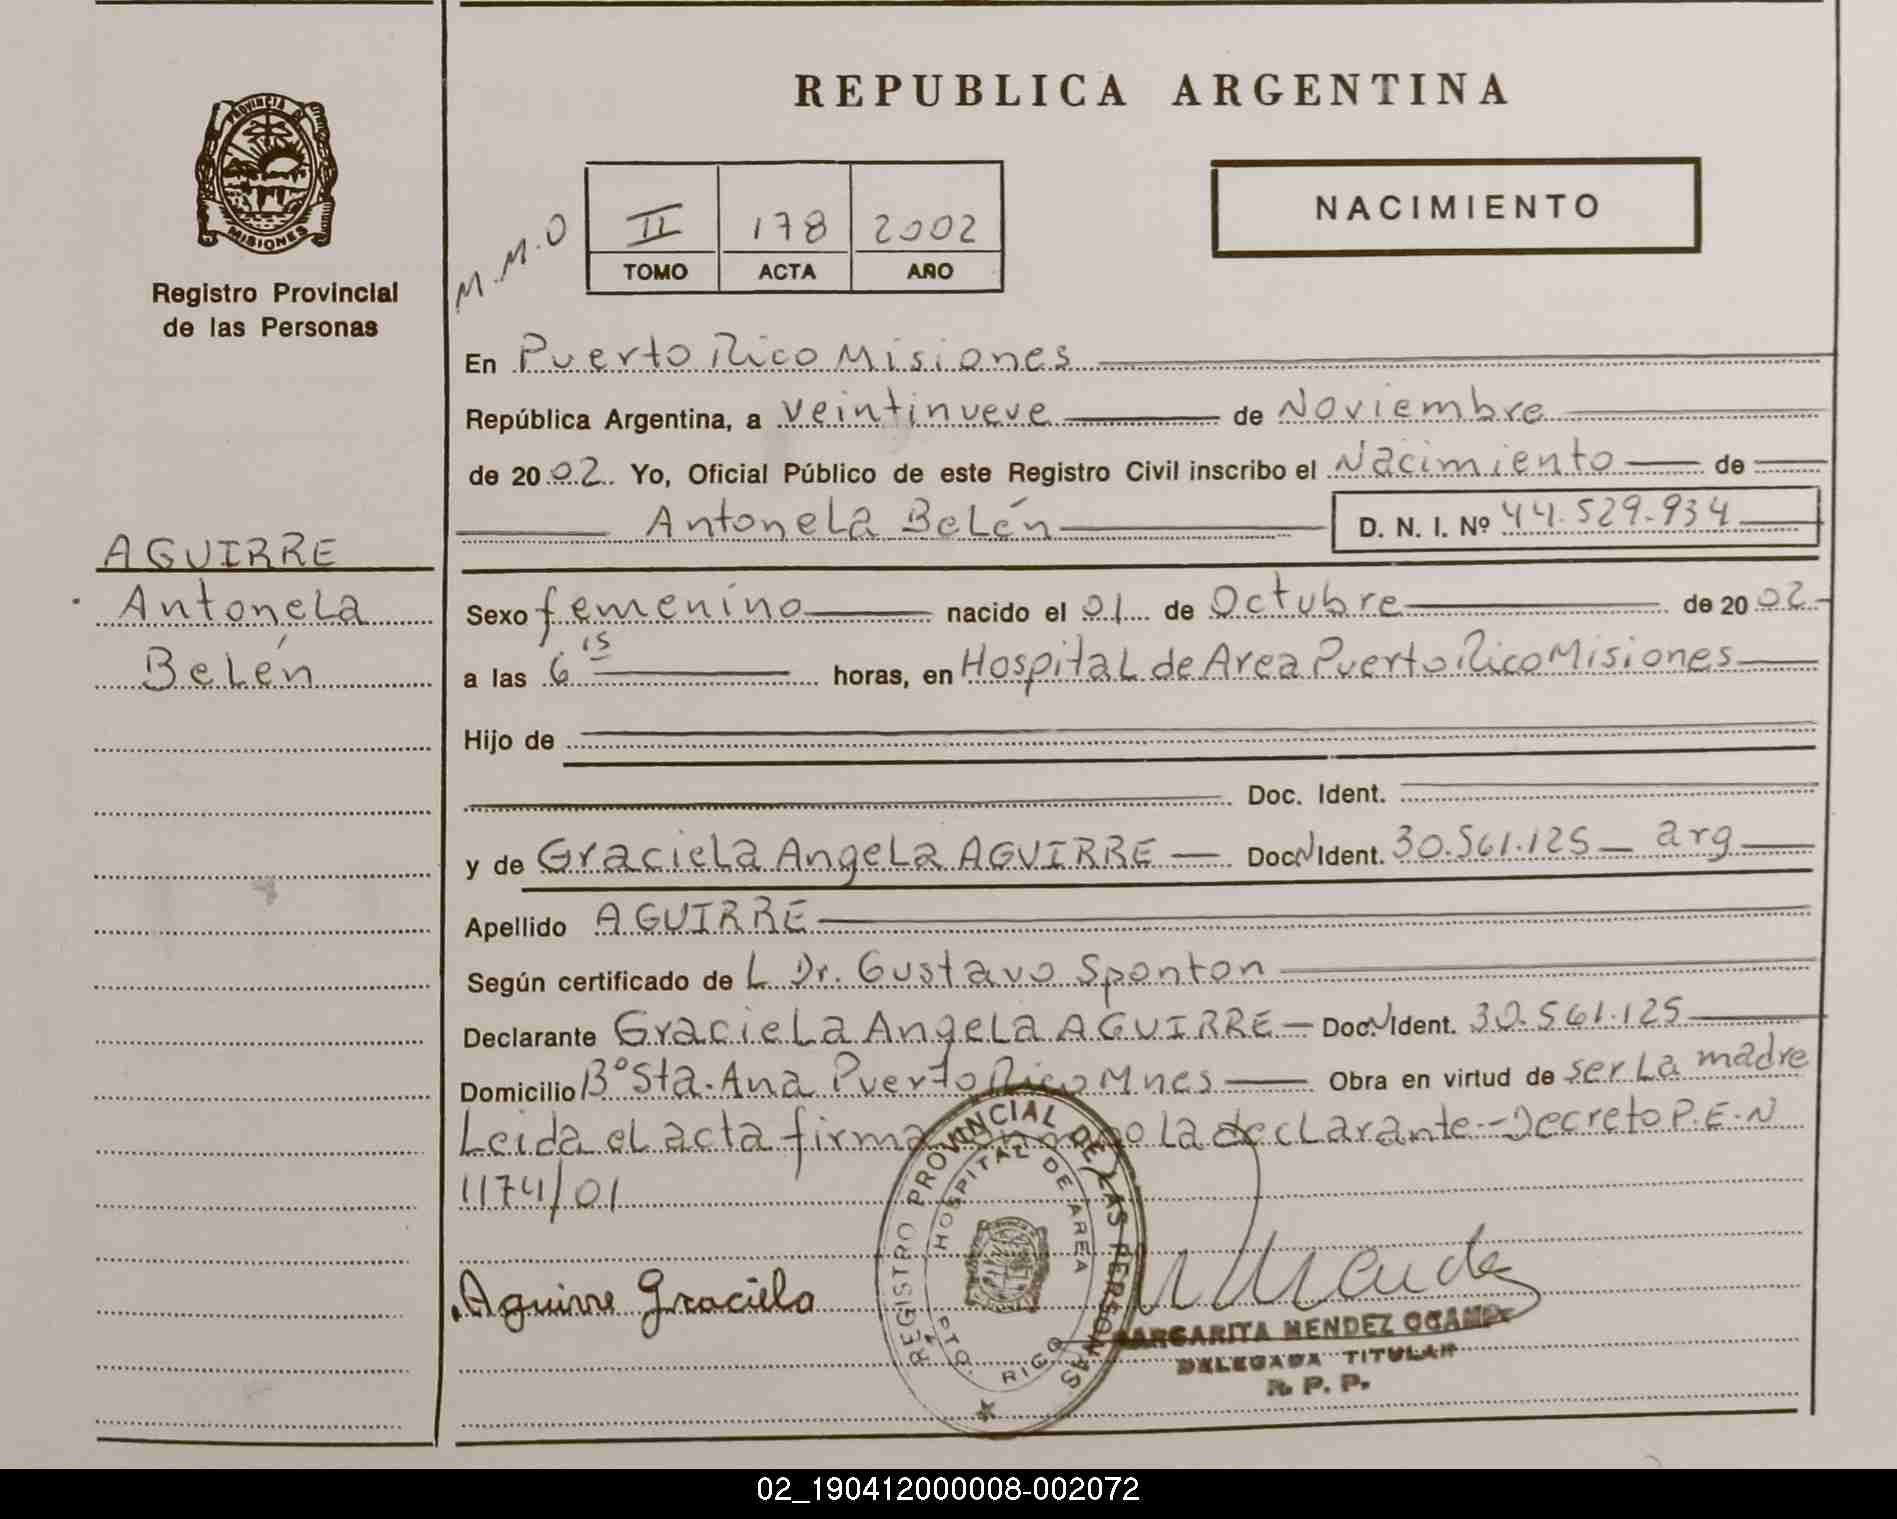 REPUBLICA ARGENTINA
PROVINCIA DE
MISIONES
Registro Provincial
de las Personas
NACIMIENTO
M.M.O
II 178 2002
TOMO ACTA AÑO
En Puerto Rico Misiones
República Argentina, a veintinueve de Noviembre
de 2002. Yo, Oficial Público de este Registro Civil inscribo el Nacimiento de
Antonela Belén D. N. I. Nº 44.529.934
AGUIRRE
Antonela
Belén
Sexo femenino nacido el 01 de Octubre de 2002
a las 6 15 horas, en Hospital de Area Puerto Rico Misiones
Hijo de
Doc. Ident.
y de Graciela Angela AGUIRRE Doc N Ident. 30.561.125 arg
Apellido AGUIRRE
Según certificado de L Dr. Gustavo Sponton
Declarante Graciela Angela AGUIRRE Doc N Ident. 30.561.125
Domicilio B° Sta. Ana Puerto Rico Mnes Obra en virtud de ser La madre
Leida el acta firma la declarante - Decreto P.E.N
1174/01
REGISTRO PROVINCIAL DE LAS PERSONAS
HOSPITAL DE AREA
PTO. RICO
Aguirre Graciela
MARGARITA MENDEZ OCAMPO
DELEGADA TITULAR
R. P. P.
02_190412000008-002072